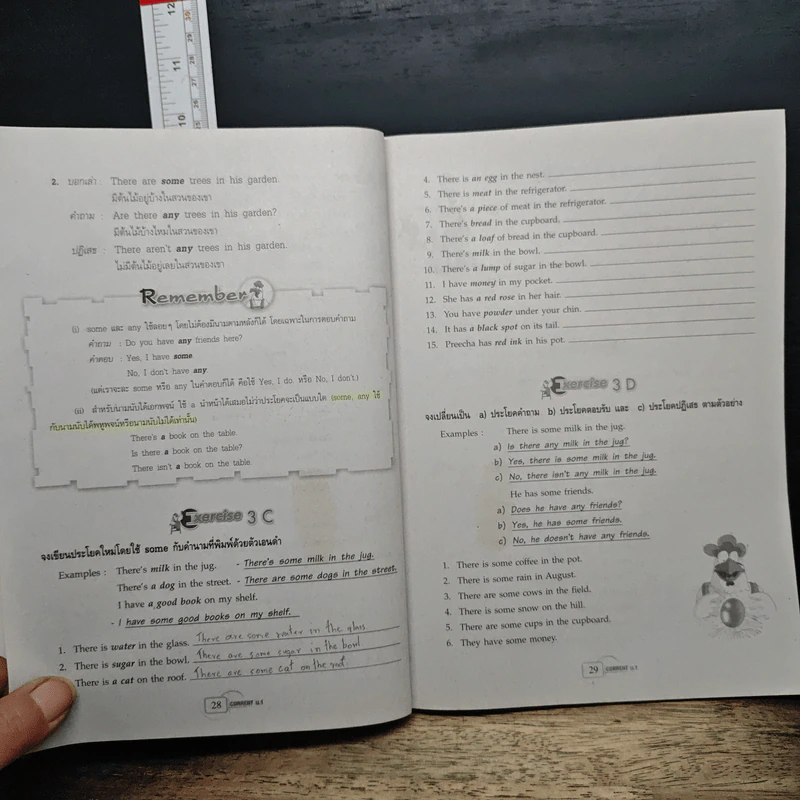 2. บอกเล่า : There are some trees in his garden.
มีต้นไม้อยู่บ้างในสวนของเขา
คำถาม : Are there any trees in his garden?
มีต้นไม้บ้างไหมในสวนของเขา
ปฏิเสธ : There aren't any trees in his garden.
ไม่มีต้นไม้อยู่เลยในสวนของเขา
Remember
(i) some และ any ใช้ลอยๆ โดยไม่ต้องมีนามตามหลังก็ได้ โดยเฉพาะในการตอบคำถาม
คำถาม : Do you have any friends here?
คำตอบ : Yes, I have some.
No, I don't have any.
(แต่เราจะละ some หรือ any ในคำตอบก็ได้ คือใช้ Yes, I do. หรือ No, I don't.)
(ii) สำหรับนามนับได้เอกพจน์ ใช้ a นำหน้าได้เสมอไม่ว่าประโยคจะเป็นแบบใด (some, any ใช้
กับนามนับได้พหูพจน์หรือนามนับไม่ได้เท่านั้น)
There's a book on the table.
Is there a book on the table?
There isn't a book on the table.
Exercise 3 C
จงเขียนประโยคใหม่โดยใช้ some กับคำนามที่พิมพ์ด้วยตัวเอนดำ
Examples : There's milk in the jug. - There's some milk in the jug.
There's a dog in the street. - There are some dogs in the street.
I have a good book on my shelf.
- I have some good books on my shelf.
1. There is water in the glass. There are some water in the glass
2. There is sugar in the bowl. There are some sugar in the bowl
There is a cat on the roof. There are some cat on the roof.
28 CURRENT ม.1
4. There is an egg in the nest.
5. There is meat in the refrigerator.
6. There's a piece of meat in the refrigerator.
7. There's bread in the cupboard.
8. There's a loaf of bread in the cupboard.
9. There's milk in the bowl.
10. There's a lump of sugar in the bowl.
11. I have money in my pocket.
12. She has a red rose in her hair.
13. You have powder under your chin.
14. It has a black spot on its tail.
15. Preecha has red ink in his pot.
Exercise 3 D
จงเปลี่ยนเป็น a) ประโยคคำถาม b) ประโยคตอบรับ และ c) ประโยคปฏิเสธ ตามตัวอย่าง
Examples : There is some milk in the jug.
a) Is there any milk in the jug?
b) Yes, there is some milk in the jug.
c) No, there isn't any milk in the jug.
He has some friends.
a) Does he have any friends?
b) Yes, he has some friends.
c) No, he doesn't have any friends.
1. There is some coffee in the pot.
2. There is some rain in August.
3. There are some cows in the field.
4. There is some snow on the hill.
5. There are some cups in the cupboard.
6. They have some money.
29 CURRENT ม.1
12
11
10